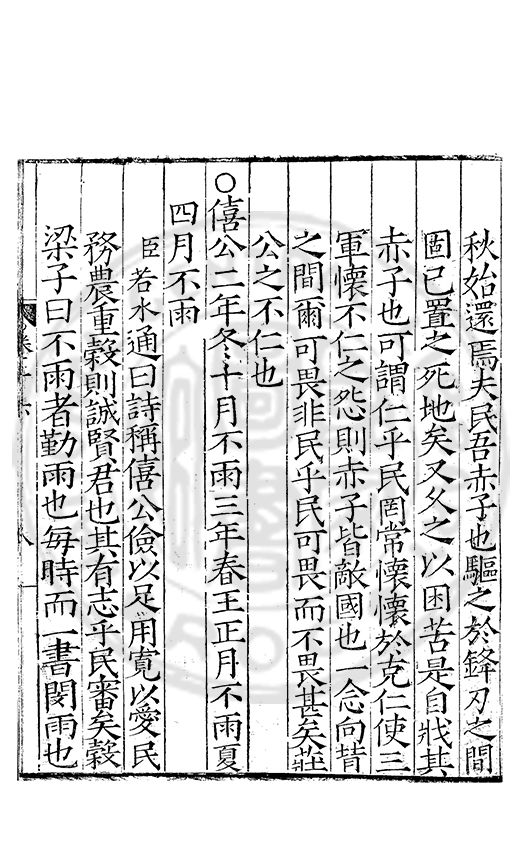 秋始還焉夫民吾赤子也驅之於鋒刃之間
固已置之死地矣又久之以困苦是自戕其
赤子也可謂仁乎民罔常懷懷於克仁使三
軍懷不仁之怨則赤子皆敵國也一念向背
之間爾可畏非民乎民可畏而不畏甚矣莊
公之不仁也
○僖公二年冬十月不雨三年春王正月不雨夏
四月不雨
臣若水通曰詩稱僖公儉以足用寬以愛民
務農重穀則誠賢君也其有志乎民審矣穀
梁子曰不雨者勤雨也每時而一書閔雨也